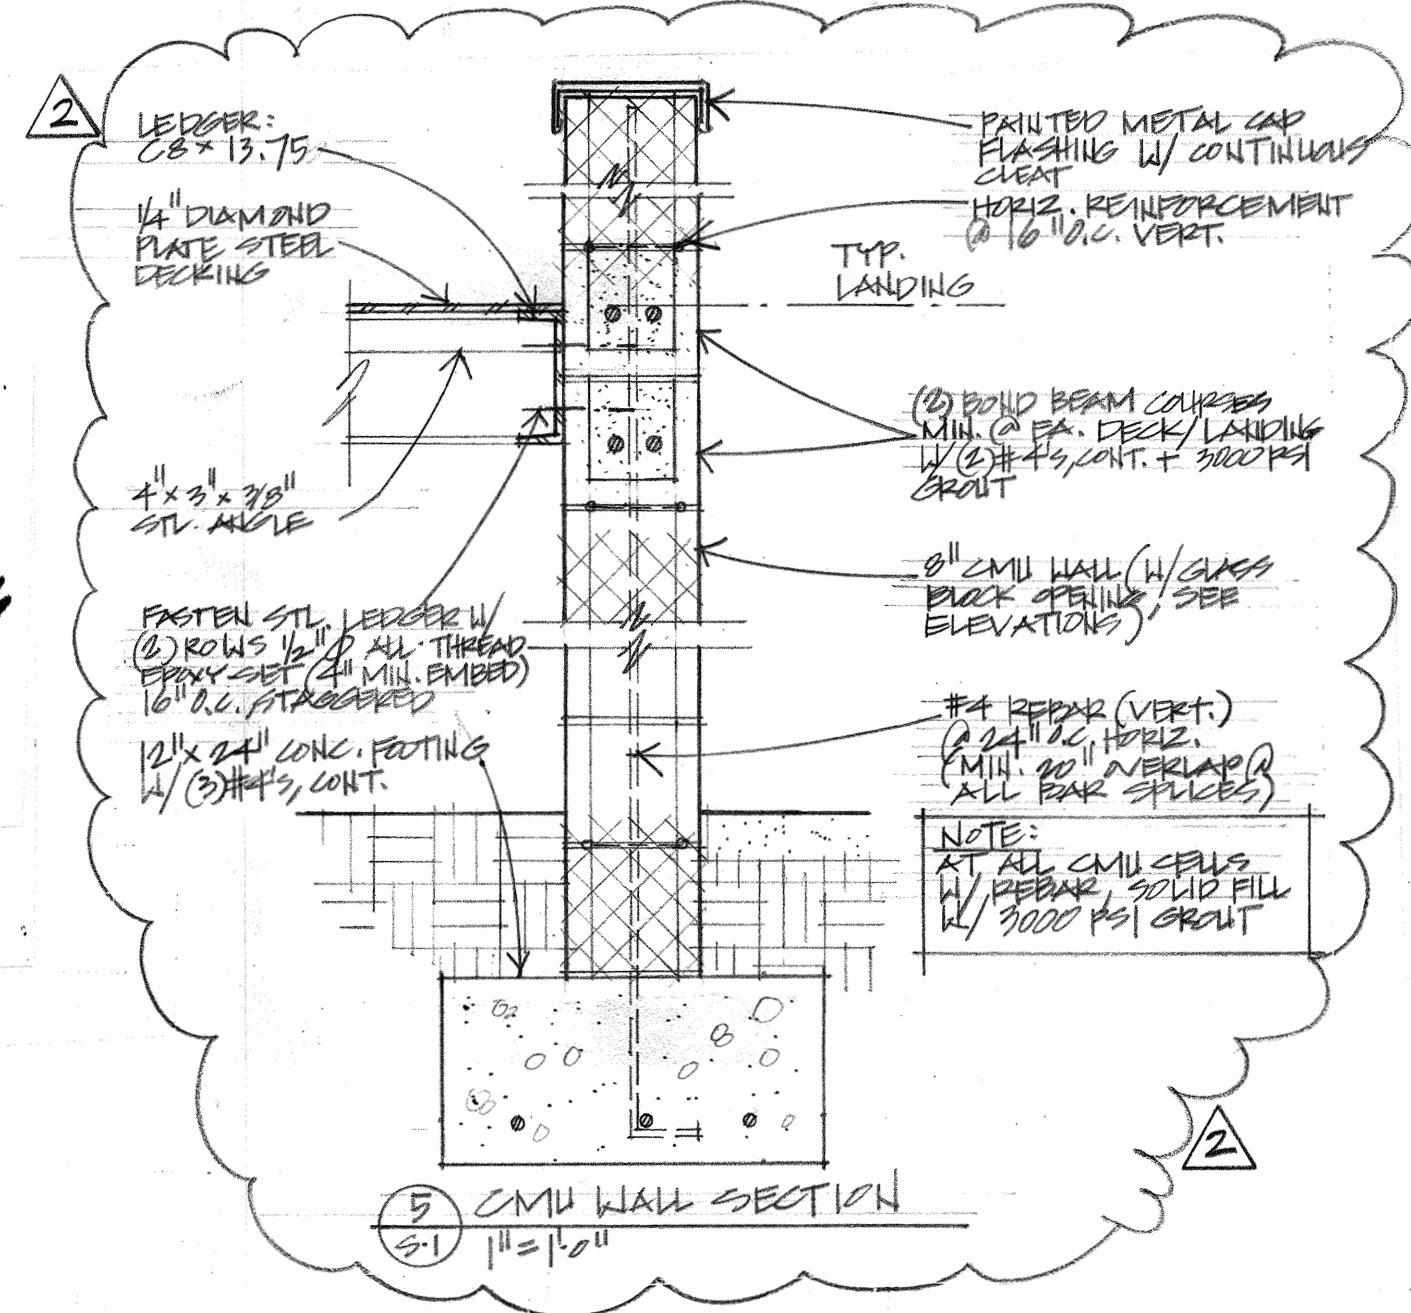 2
LEDGER:
C8 x 13.75
1/4" DIAMOND
PLATE STEEL
DECKING
4" x 3" x 3/8"
STL. ANGLE
FASTEN STL. LEDGER W/
(2) ROWS 1/2" Ø ALL-THREAD
EPOXY SET (4" MIN. EMBED)
16" O.C. STAGGERED
12" x 24" CONC. FOOTING
W/ (3) #4'S, CONT.
PAINTED METAL CAP
FLASHING W/ CONTINUOUS
CLEAT
HORIZ. REINFORCEMENT
@ 16" O.C. VERT.
TYP.
LANDING
(2) BOND BEAM COURSES
MIN. @ EA. DECK/LANDING
W/ (2) #4'S, CONT. + 3000 PSI
GROUT
8" CMU WALL (W/ GLASS
BLOCK OPENING, SEE
ELEVATIONS)
#4 REBAR (VERT.)
@ 24" O.C. HORIZ.
(MIN. 20" OVERLAP @
ALL BAR SPLICES)
NOTE:
AT ALL CMU CELLS
W/ REBAR, SOLID FILL
W/ 3000 PSI GROUT
2
5
S-1
CMU WALL SECTION
1" = 1'-0"